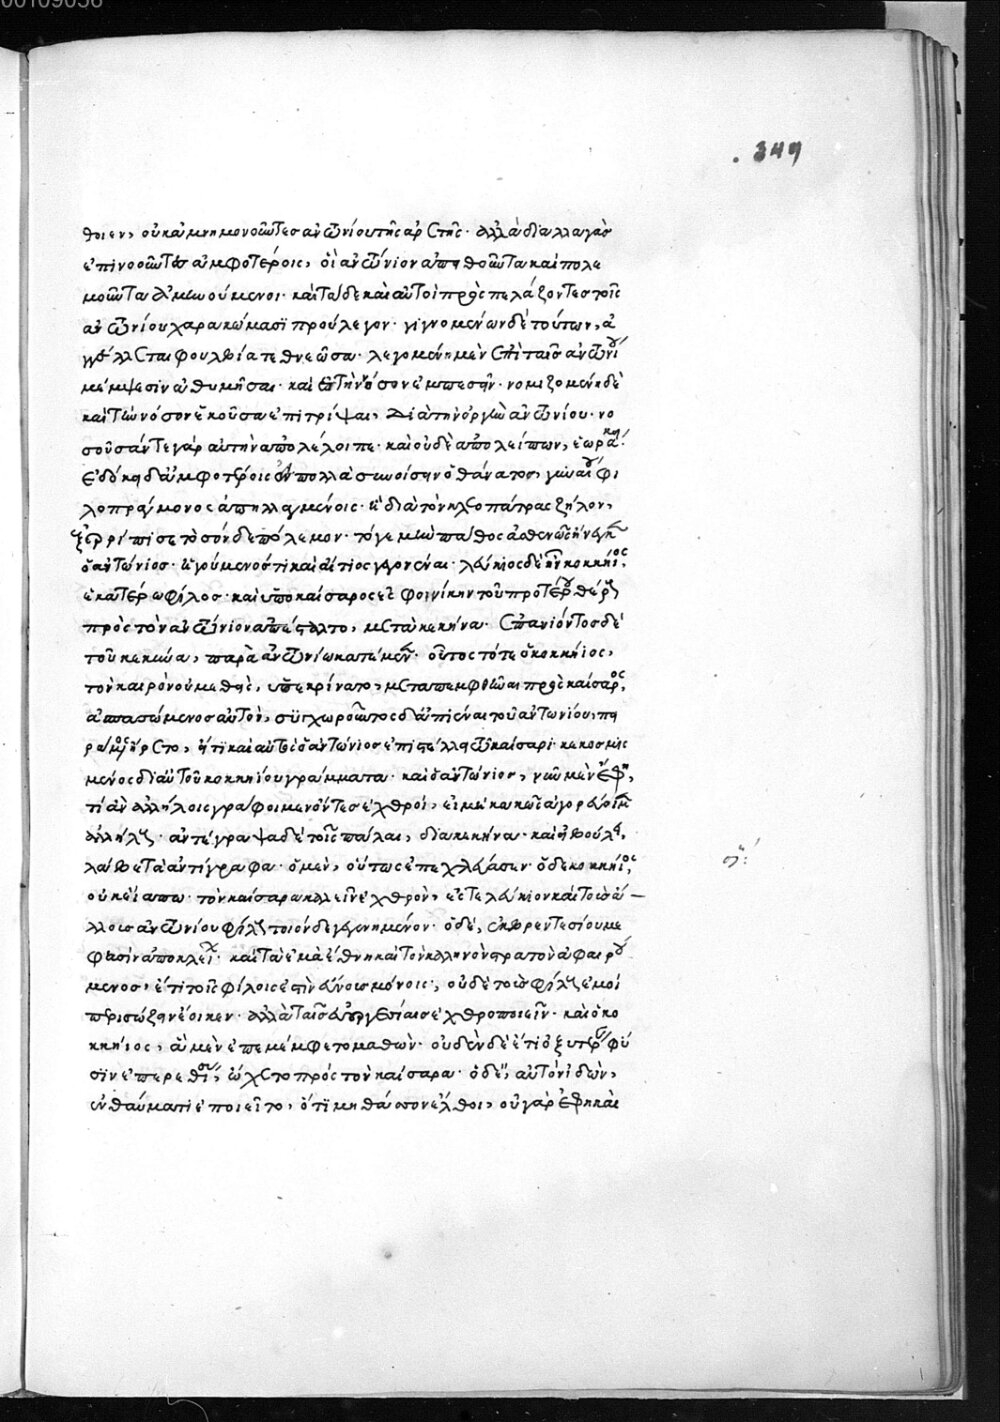 00109056
. 349
θοιεν, οὐκ ἀμνημονοῦντες ἀντωνίου τῆς ἀρετῆς· ἀλλὰ διαλλαγὰσ
ἐπινοοῦντες ἀμφοτέροις, οἱ ἀντώνιον ἀπειθοῦντα καὶ πολε
μοῦντα ἀμυνούμενοι· καὶ τάδε καὶ αὐτοὶ προσπελάζοντες τοῖς
ἀντωνίου χαρακώμασι προύλεγον· γιγνομένων δὲ τούτων, ἀ
γγέλλεται φουλβία τεθνεῶσα· λεγομένη μὲν ἐπὶ ταῖς ἀντωνίου
μέμψεσιν ἀθυμῆσαι· καὶ ἐς τὴν νόσον ἐμπεσεῖν· νομιζομένη δὲ
καὶ τὴν νόσον ἑκοῦσα ἐπιτρίψαι, διὰ τὴν ὀργὴν ἀντωνίου· νο
σοῦσάν τε γὰρ αὐτὴν ἀπολελοίπει· καὶ οὐδὲ ἀπολείπων, ἑωράκει·
ἐδόκει δ' ἀμφοτέροις ἐς πολλὰ συνοίσειν ὁ θάνατος, γυναίου φι
λοπράγμονος ἀπηλλαγμένοις· ἣ διὰ τὸν κλεοπάτρας ζῆλον,
ἐξερρίπισε τοσόνδε πόλεμον· τό γε μὴν πάθος ἀσθενῶς ἤνεγκεν
ὁ ἀντώνιος· ἡγούμενός τι καὶ αἴτιος γεγονέναι· λεύκιος δὲ ἦν κοκκήιος,
ἑκατέρω φίλος· καὶ ὑπὸ καίσαρος ἐς φοινίκην τοῦ προτέρου θέρους
πρὸς τὸν ἀντώνιον ἀπέσταλτο, μετὰ κεκίνα· ἐπανιόντος δὲ
τοῦ κεκίνα, παρὰ ἀντωνίω κατέμεινεν· οὗτος τότε ὁ κοκκήιος,
τὸν καιρὸν οὐ μεθεὶς, ὑπεκρίνατο, μεταπεμφθῆναι πρὸς καίσαρος,
ἀσπασόμενος αὐτόν, συγχωροῦντος δ' ἀπιέναι τοῦ ἀντωνίου, πει
ρώμενος ἤρετο, εἴ τι καὶ αὐτὸς ὁ ἀντώνιος ἐπιστέλλει τῷ καίσαρι· κεκοσμις
μένος δι' αὐτοῦ κοκκηίου γράμματα· καὶ ὁ ἀντώνιος, νῦν μὲν ἔφη,
τί ἂν ἀλλήλοις γράφοιμεν ὄντες ἐχθροί, εἰ μὴ κακῶς ἀγορεύοιμεν
ἀλλήλους· ἀντέγραψα δὲ τοῖς πάλαι, διὰ κεκίνα· καὶ εἰ βούλει,
λάβε τὰ ἀντίγραφα· ὁ μὲν, οὕτως ἐπεχλεύασεν· ὁ δὲ κοκκήιος,
οὐκ εἴα πω· τὸν καίσαρα καλεῖν ἐχθρόν, ἔς τε λεύκιον καὶ τοὺς ἄ—
λλους ἀντωνίου φίλους τοιόνδε γεγενημένον· ὁ δέ, ἐκ βρεντεσίου με
φησὶν ἀποκλείει· καὶ τὰ ἐμὰ ἔθνη καὶ τὸν καληνοῦ στρατὸν ἀφαιρού
μενος, ἔτι τοῖς φίλοις ἐστὶν εὔνους μόνοις·, οὐδὲ τοὺς φίλους ἐμοὶ
περισώζειν ἔοικεν· ἀλλὰ ταῖς εὐεργεσίαις ἐχθροποιεῖν· καὶ ὁ κο
κκήιος, ἃ μὲν ἐπεμέμφετο μαθών· οὐδὲν δὲ ἔτι ὀξυτέρου φύ
σιν ἐπερεθίσας, ᾤχετο πρὸς τὸν καίσαρα· ὁ δὲ, αὐτὸν ἰδών,
ἐν θαύματι ἐποιεῖτο, ὅτι μὴ θάσσον ἔλθοι, οὐ γὰρ ἔφη καὶ